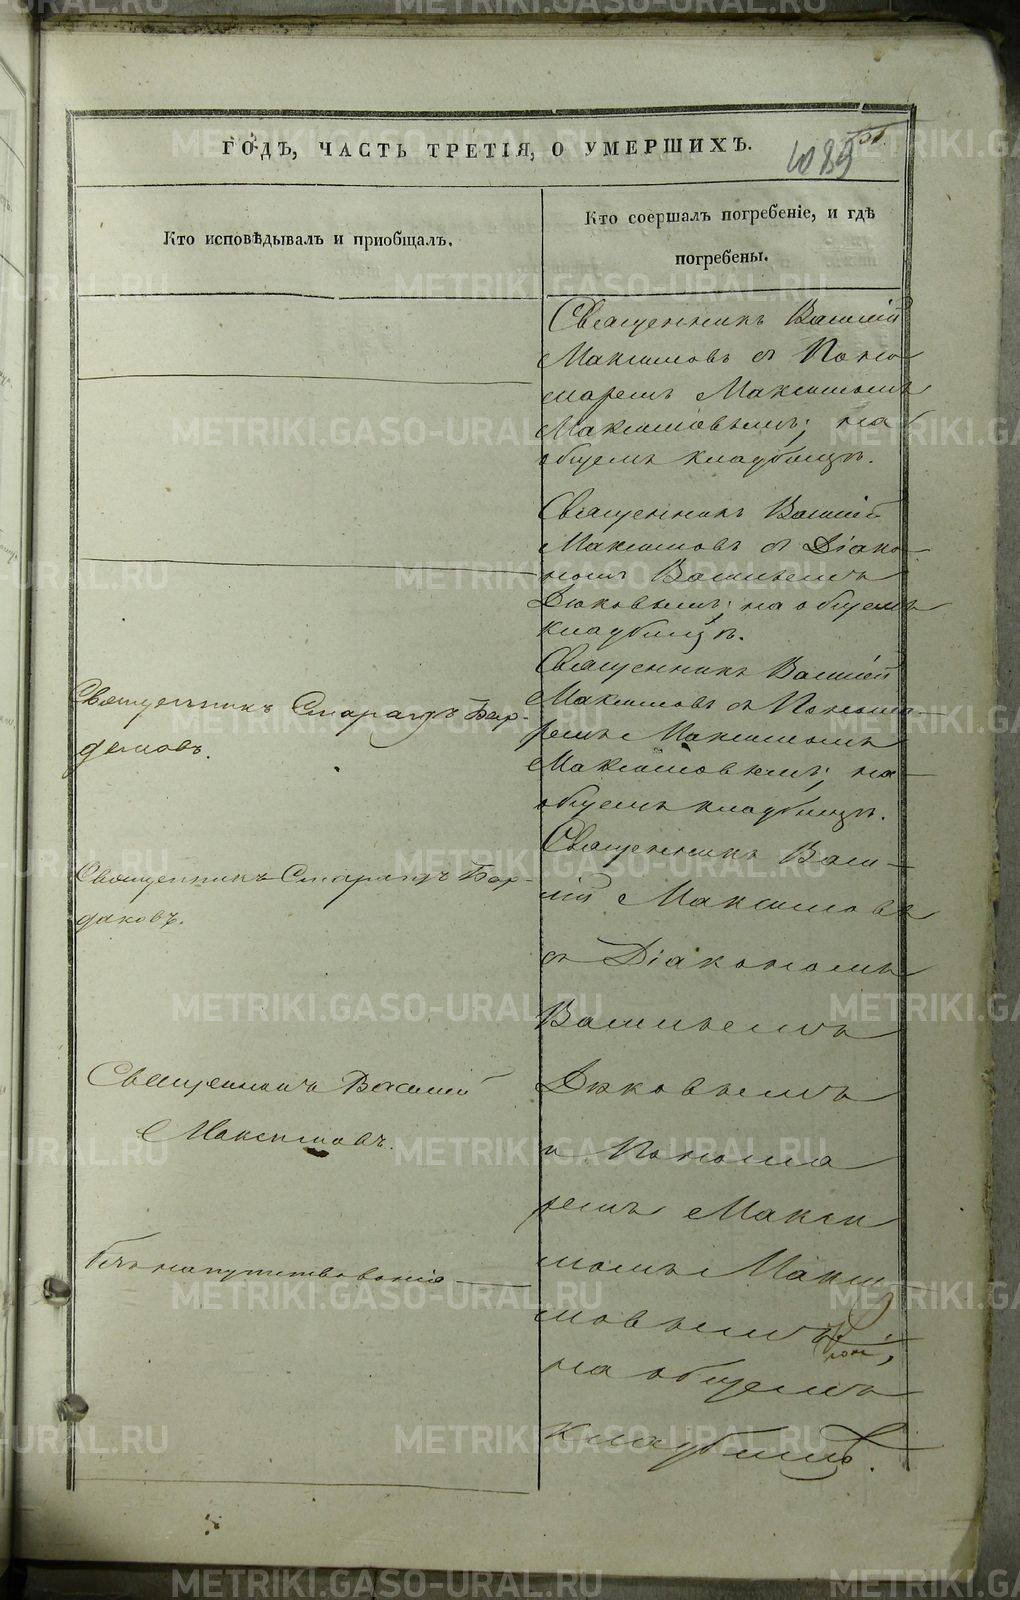 ГОДЪ, ЧАСТЬ ТРЕТІЯ, О УМЕРШИХЪ.
1089
Кто исповѣдывалъ и приобщалъ.
Кто соершалъ погребеніе, и гдѣ
погребены.
Священникъ Василій
Максимовъ съ Поно
маремъ Максимомъ
Максимовымъ; на
общемъ кладбищѣ.
Священникъ Василій
Максимовъ съ Діако
номъ Васильемъ
Дюковымъ; на общемъ
кладбищѣ.
Священникъ Смарагдъ Бар-
Священникъ Василій
Максимовъ съ Понома
ремъ Максимомъ
Максимовымъ; на
общемъ кладбищѣ.
Священникъ Смарагдъ Бар-
даковъ.
Священникъ Василій
Максимовъ.
Безъ напутствованія
Священникъ Васи
лій Максимовъ
съ Діакономъ
Васильемъ
Дюковымъ
и Понома
ремъ Макси
момъ Макси
мовымъ;
на общемъ
кладбищѣ.
METRIKI.GASO-URAL.RU